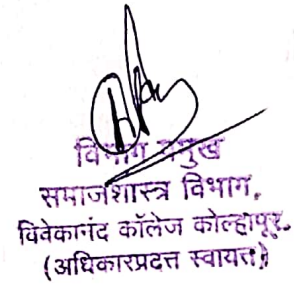 विभाग प्रमुख
समाजशास्त्र विभाग,
विवेकानंद कॉलेज कोल्हापूर.
(अधिकारप्रदत्त स्वायत्त)